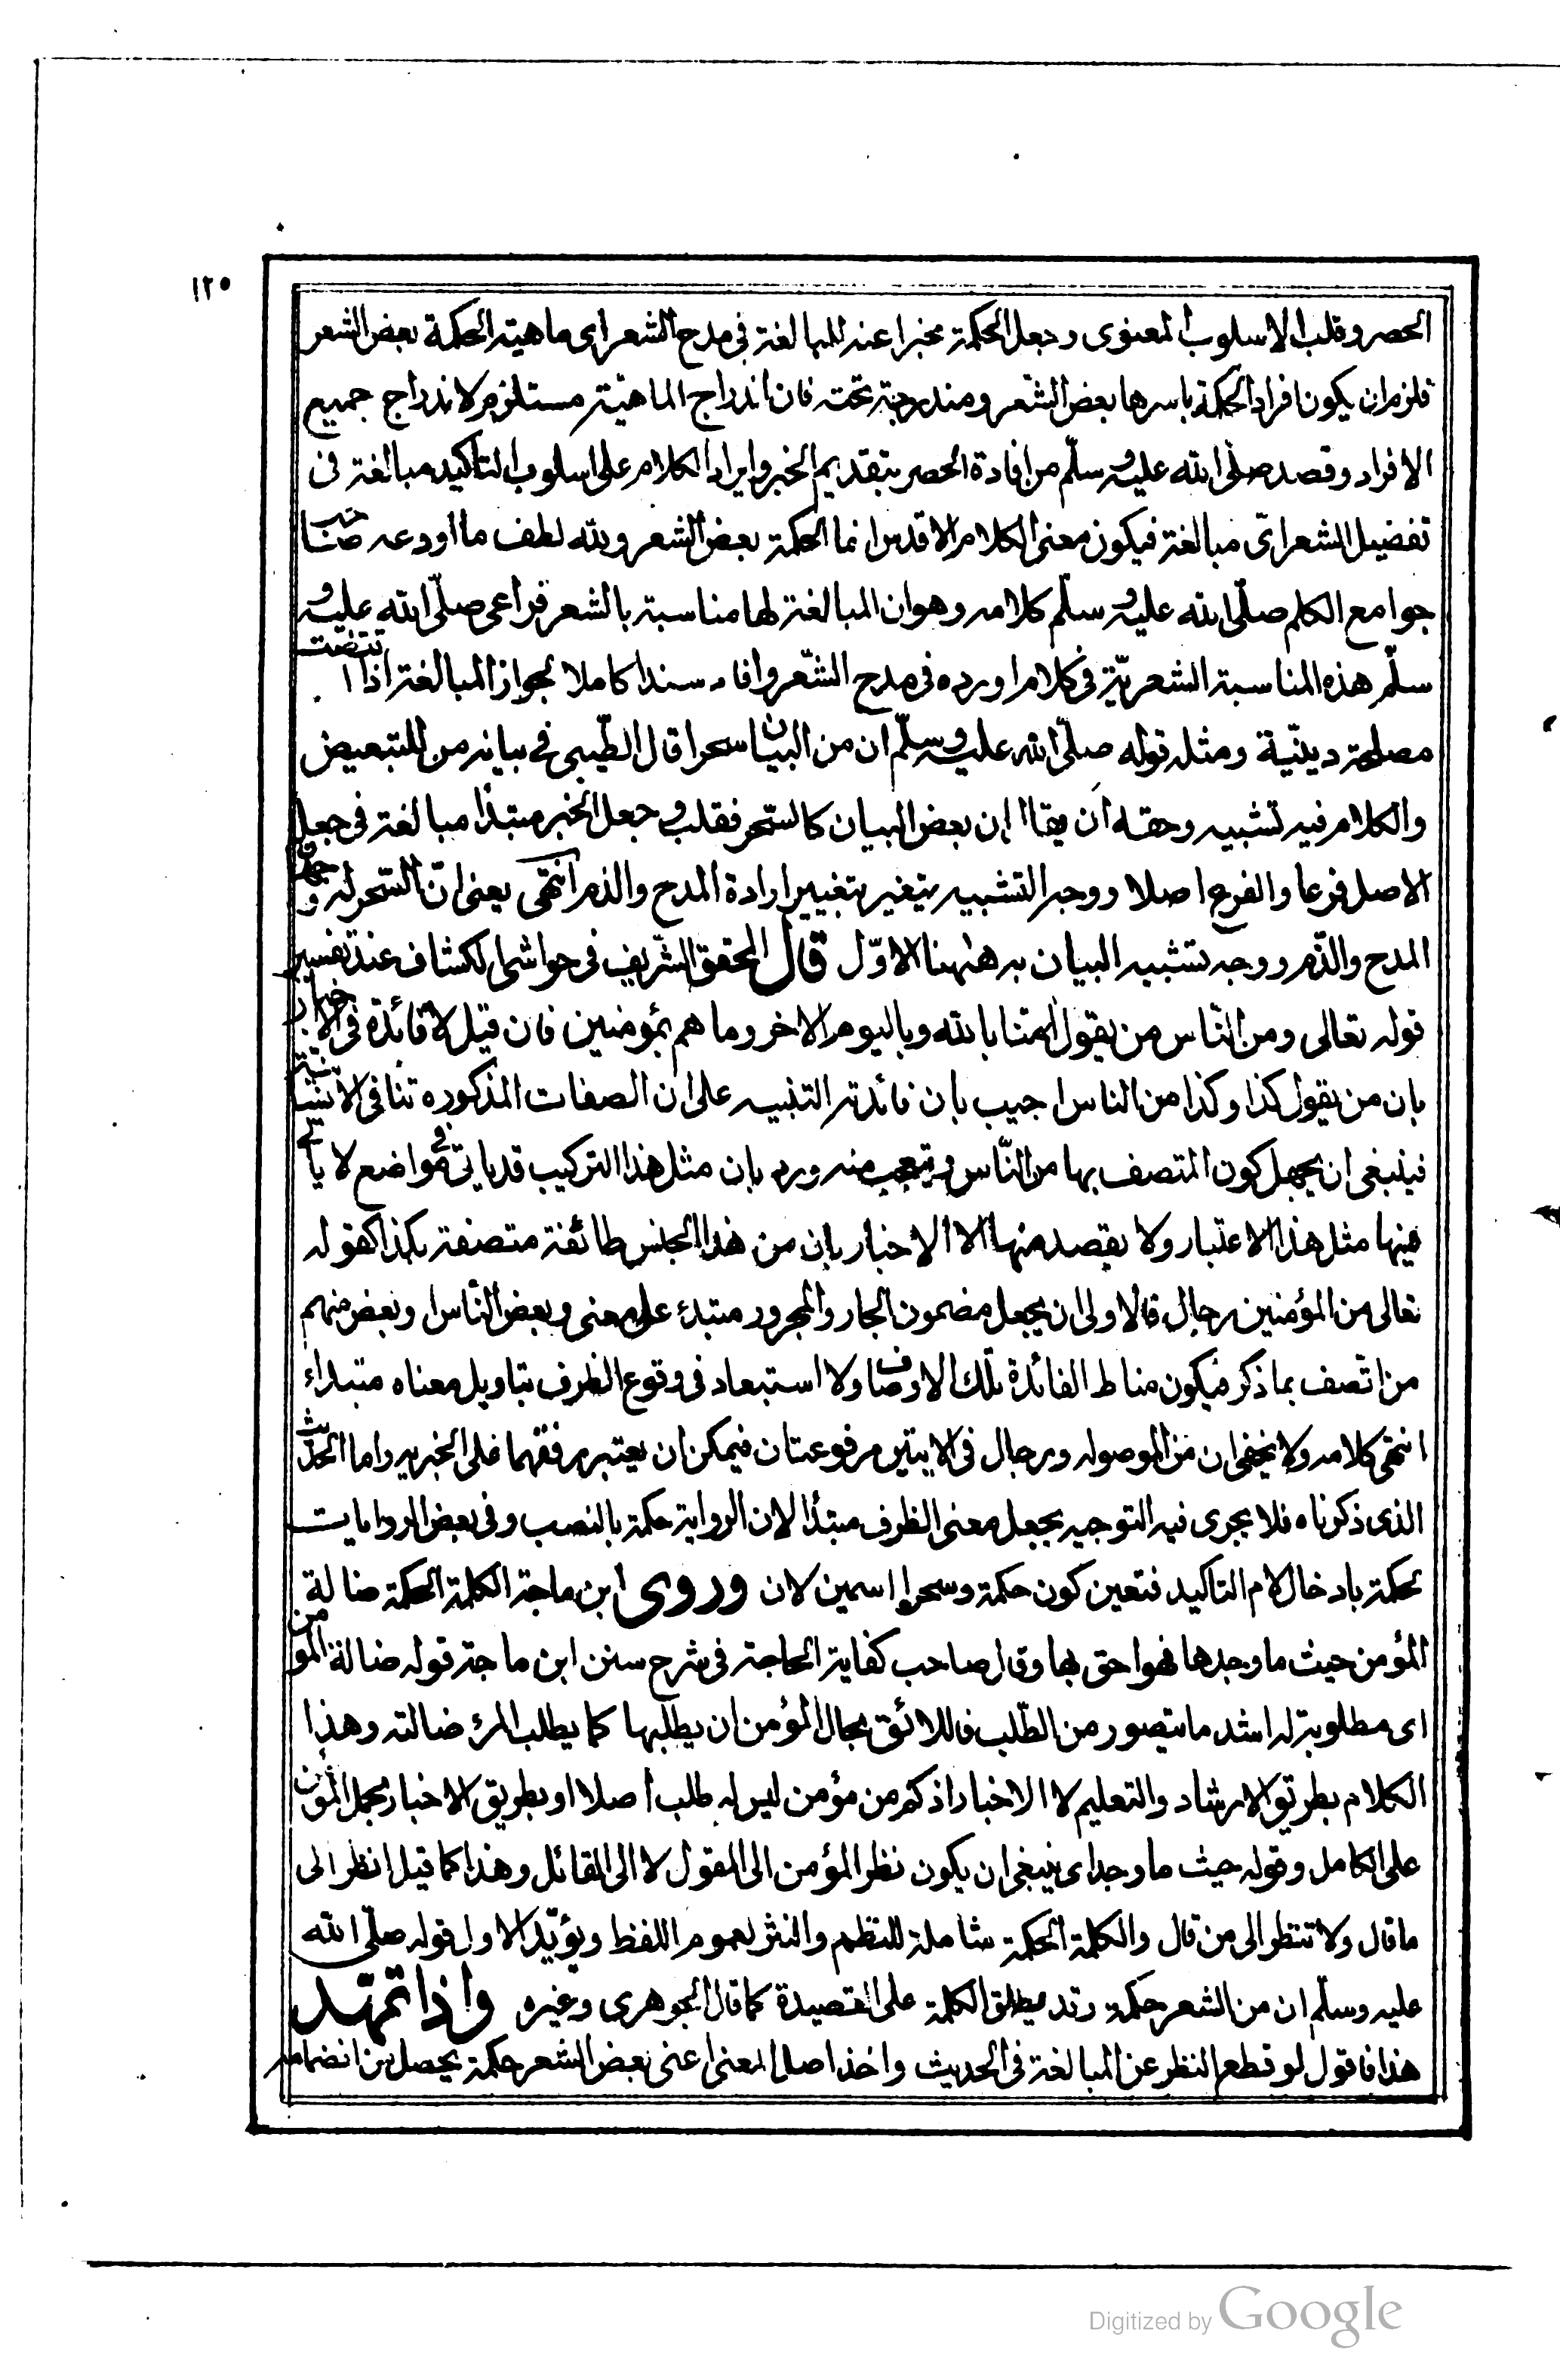 ١٢٥
الحصر وقلب الاسلوب المعنوى وجعل الحكمة مخبرا عنه للمبالغة فى مدح الشعر اى ماهية الحكمة بعض الشعر
فلزم ان يكون افراد الحكمة باسرها بعض الشعر ومندرجة تحته فان اندراج الماهيّة مستلزم لاندراج جميع
الافراد وقصد صلى الله عليه وسلّم من افادة الحصر بتقديم الخبر وايراد الكلام على اسلوب التاكيد مبالغة فى
تفضيل الشعر اىّ مبالغة فيكون معنى الكلام الاقدس انما الحكمة بعض الشعر ولله لطف ما اودعه صاحب
جوامع الكلم صلّى الله عليه وسلّم كلامه وهو ان المبالغة لها مناسبة بالشعر فراعى صلّى الله عليه و
سلّم هذه المناسبة الشعريّة فى كلام اورده فى مدح الشّعر وافاد سندا كاملا لجواز المبالغة اذا اقتضت
مصلحة دينيّة ومثله قوله صلّى الله عليه وسلّم ان من البيان سحرا قال الطّيبى فى بيانه من للتبعيض
والكلام فيه تشبيه وحقه ان يقال ان بعض البيان كالسّحر فقلب وجعل الخبر مبتدأ مبالغة فى جعل
الاصل فرعا والفرع اصلا ووجه التشبيه يتغير بتغيير ارادة المدح والذم انتهى يعنى انّ السّحر له وجهان
المدح والذّم ووجه تشبيه البيان به ههنا الاوّل قال المحقق الشّريف فى حواشى الكشاف عند تفسير
قوله تعالى ومن النّاس من يقول امنّا بالله وباليوم الاخر وما هم بمؤمنين فان قيل لا فائدة فى الاخبار
بان من يقول كذا وكذا من الناس اجيب بان فائدته التنبيه على ان الصفات المذكوره تنافى الانسانية
فينبغى ان يجهل كون المتصف بها من النّاس ويتعجب منه ورد بان مثل هذا التركيب قد ياتى فى مواضع لا يأتى
فيها مثل هذا الاعتبار ولا يقصد منها الا الاخبار بان من هذا الجنس طائفة متصفة بكذا كقوله
تعالى من المؤمنين رجال فالاولى ان يجعل مضمون الجار والمجرور مبتدء على معنى وبعض النّاس او بعض منهم
من اتّصف بما ذكر فيكون مناط الفائدة تلك الاوصاف ولا استبعاد فى وقوع الظرف بتاويل معناه مبتداء
انتهى كلامه ولا يخفى ان من الموصوله ورجال فى الايتين مرفوعتان فيمكن ان يعتبر رفعهما على الخبريه واما الحديث
الذى ذكرناه فلا يجرى فيه التوجيه بجعل معنى الظرف مبتدأ لان الرواية حكمة بالنصب وفى بعض الروايات
لحكمة بادخال لام التاكيد فتعين كون حكمة وسحرا اسمين لان وروى ابن ماجة الكلمة الحكمة ضالة
المؤمن حيث ما وجدها فهو احق بها وقال صاحب كفاية الحاجة فى شرح سنن ابن ماجة قوله ضالة المؤمن
اى مطلوبة له اشد ما يتصور من الطّلب فاللائق بحال المؤمن ان يطلبها كما يطلب المرء ضالته وهذا
الكلام بطريق الارشاد والتعليم لا الاخبار اذ كم من مؤمن ليس له طلب أصلا او بطريق الاخبار بحمل المؤمن
على الكامل وقوله حيث ما وجد اى ينبغى ان يكون نظر المؤمن الى المقول لا الى القائل وهذا كما قيل انظر الى
ما قال ولا تنظر الى من قال والكلمة الحكمة شاملة للنظم والنثر لعموم اللفظ ويؤيّد الاول قوله صلّى الله
عليه وسلّم ان من الشعر حكمة وقد يطلق الكلمة على القصيدة كما قال الجوهرى وغيره واذا تمهّد
هذا فاقول لو قطع النظر عن المبالغة فى الحديث واخذ اصل المعنى اعنى بعض الشعر حكمة يحصل من انضمامه
Digitized by Google